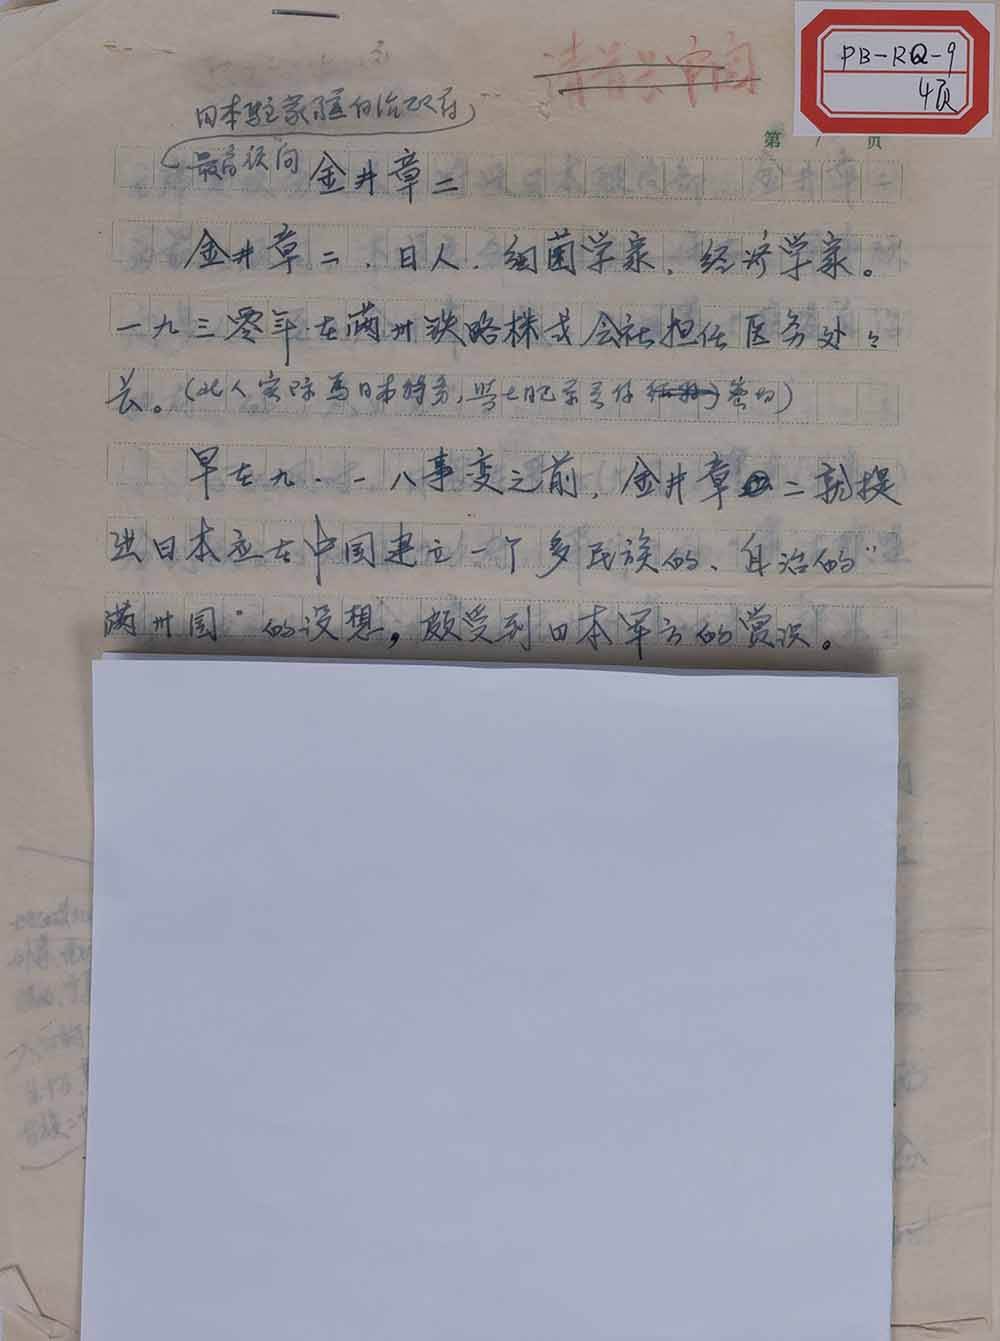 PB-RQ-9
4页
第 1 页
日本驻蒙疆自治政府
最高顾问 金井章二
金井章二、日人、细菌学家、经济学家。
一九三零年在满州铁路株式会社担任医务处々
长。(此人实际为日本特务,
早在九·一八事变之前,金井章二就提
出日本应在中国建立一个多民族的、自治的“
满州国”的设想,颇受到日本军方的赏识。